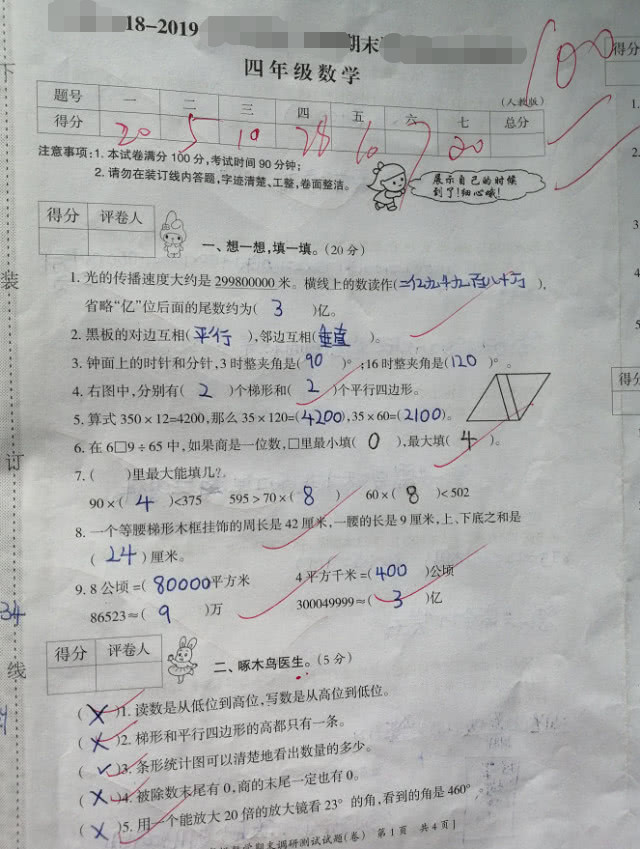 18-2019
期末
四年级数学
100
(人教版)
得分
题号 一 二 三 四 五 六 七 总分
得分 20 5 10 28 10 7 20
注意事项:1. 本试卷满分 100 分,考试时间 90 分钟;
2. 请勿在装订线内答题,字迹清楚、工整,卷面整洁。
展示自己的时候
到了!细心哦!
得分 评卷人
一、想一想,填一填。(20 分)
1. 光的传播速度大约是 299800000 米。横线上的数读作(二亿九千九百八十万),
省略“亿”位后面的尾数约为( 3 )亿。
2. 黑板的对边互相(平行),邻边互相(垂直)。
3. 钟面上的时针和分针,3 时整夹角是( 90 )°;16 时整夹角是(120)°。
4. 右图中,分别有( 2 )个梯形和( 2 )个平行四边形。
5. 算式 350×12=4200,那么 35×120=(4200),35×60=(2100)。
6. 在 6□9÷65 中,如果商是一位数,□里最小填( 0 ),最大填( 4 )。
7. ( )里最大能填几?
90×( 4 )<375 595>70×( 8 ) 60×( 8 )<502
8. 一个等腰梯形木框挂饰的周长是 42 厘米,一腰的长是 9 厘米,上、下底之和是
( 24 )厘米。
9. 8 公顷=( 80000 平方米 4 平方千米=( 400 )公顷
86523≈( 9 )万 300049999≈( 3 )亿
得分 评卷人
二、啄木鸟医生。(5 分)
(×)1. 读数是从低位到高位,写数是从高位到低位。
(×)2. 梯形和平行四边形的高都只有一条。
(✓)3. 条形统计图可以清楚地看出数量的多少。
(×)4. 被除数末尾有 0,商的末尾一定也有 0。
(×)5. 用一个能放大 20 倍的放大镜看 23° 的角,看到的角是 460°
期末调研测试试题(卷) 第 1 页 共 4 页
装
订
线
34
1.
2.
3
4
5
得分